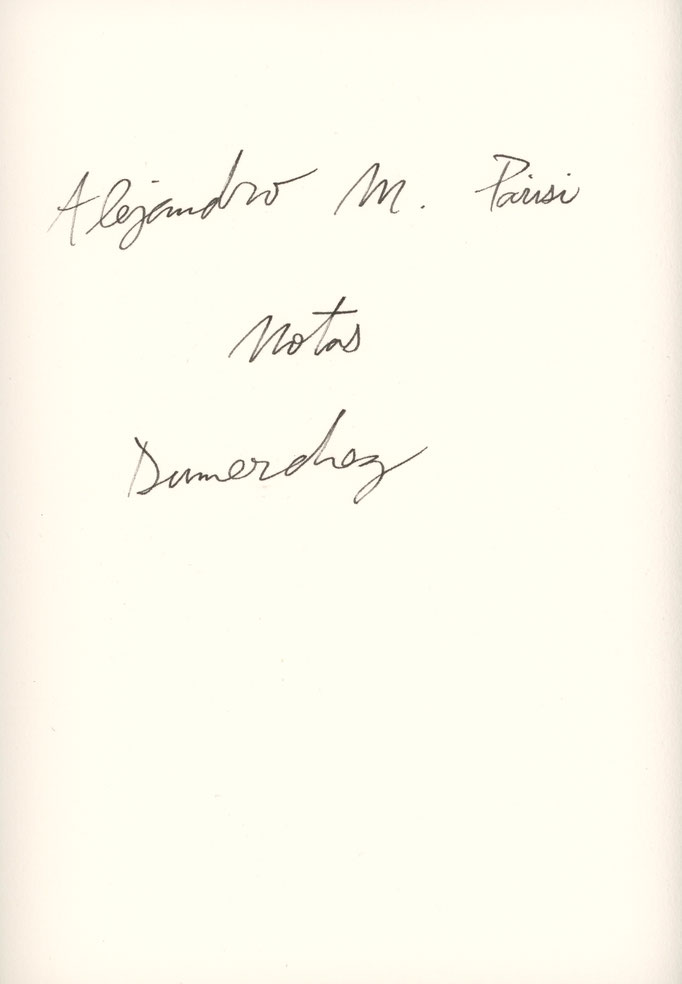 Alejandro M. Parisi
Notas
Dumerchez